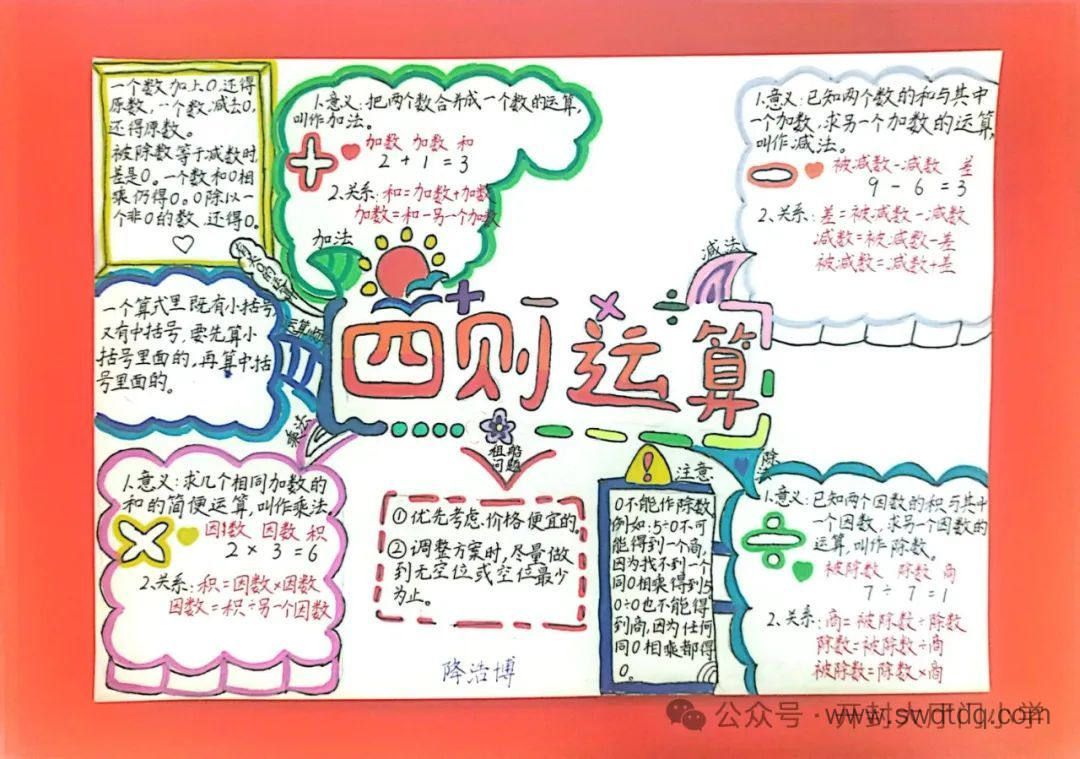 一个数加上0,还得
原数,一个数减去0,
还得原数。
被除数等于减数时,
差是0。一个数和0相
乘仍得0。0除以一
个非0的数,还得0。
1.意义:把两个数合并成一个数的运算,
叫作加法。
加数 加数 和
2+1=3
2.关系:和=加数+加数
加数=和-另一个加数
加法
1.意义:已知两个数的和与其中
一个加数,求另一个加数的运算,
叫作减法。
被减数-减数 差
9-6=3
2.关系:差=被减数-减数
减数=被减数-差
被减数=减数+差
减法
一个算式里既有小括号,
又有中括号,要先算小
括号里面的,再算中括
号里面的。
运算
四则运算
乘法
1.意义:求几个相同加数的
和的简便运算,叫作乘法。
因数 因数 积
2×3=6
2.关系:积=因数×因数
因数=积÷另一个因数
租船
问题
①优先考虑价格便宜的。
②调整方案时,尽量做
到无空位或空位最少
为止。
注意
0不能作除数
例如:5÷0不可
能得到一个商,
因为找不到一个
同0相乘得到5
0÷0也不能得
到商,因为任何
同0相乘都得
0。
除法
1.意义:已知两个因数的积与其中
一个因数,求另一个因数的
运算,叫作除数。
被除数 除数 商
7÷7=1
2.关系:商=被除数÷除数
除数=被除数÷商
被除数=除数×商
降浩博
公众号·开封大厅门小学
www.swdtdq.com